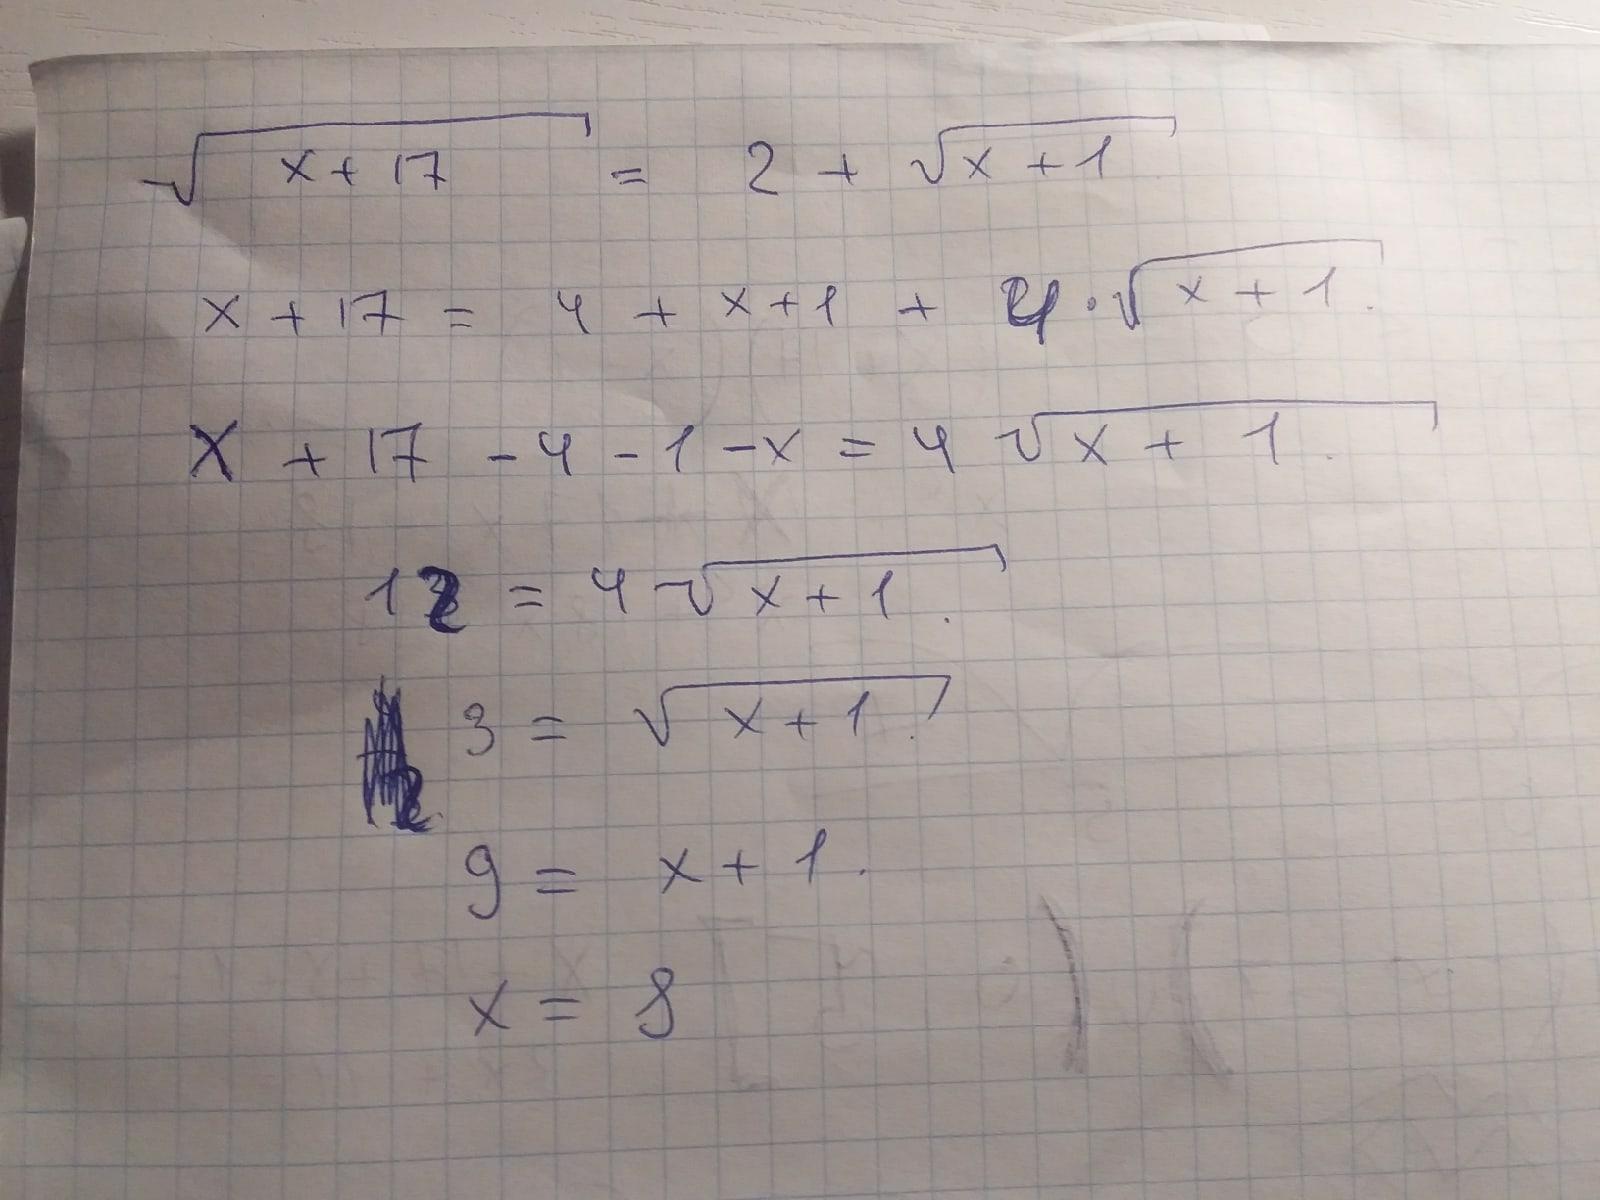 √(x + 17) = 2 + √(x + 1)
x + 17 = 4 + x + 1 + 4 · √(x + 1).
x + 17 - 4 - 1 - x = 4 √(x + 1).
12 = 4 √(x + 1).
3 = √(x + 1).
9 = x + 1.
x = 8